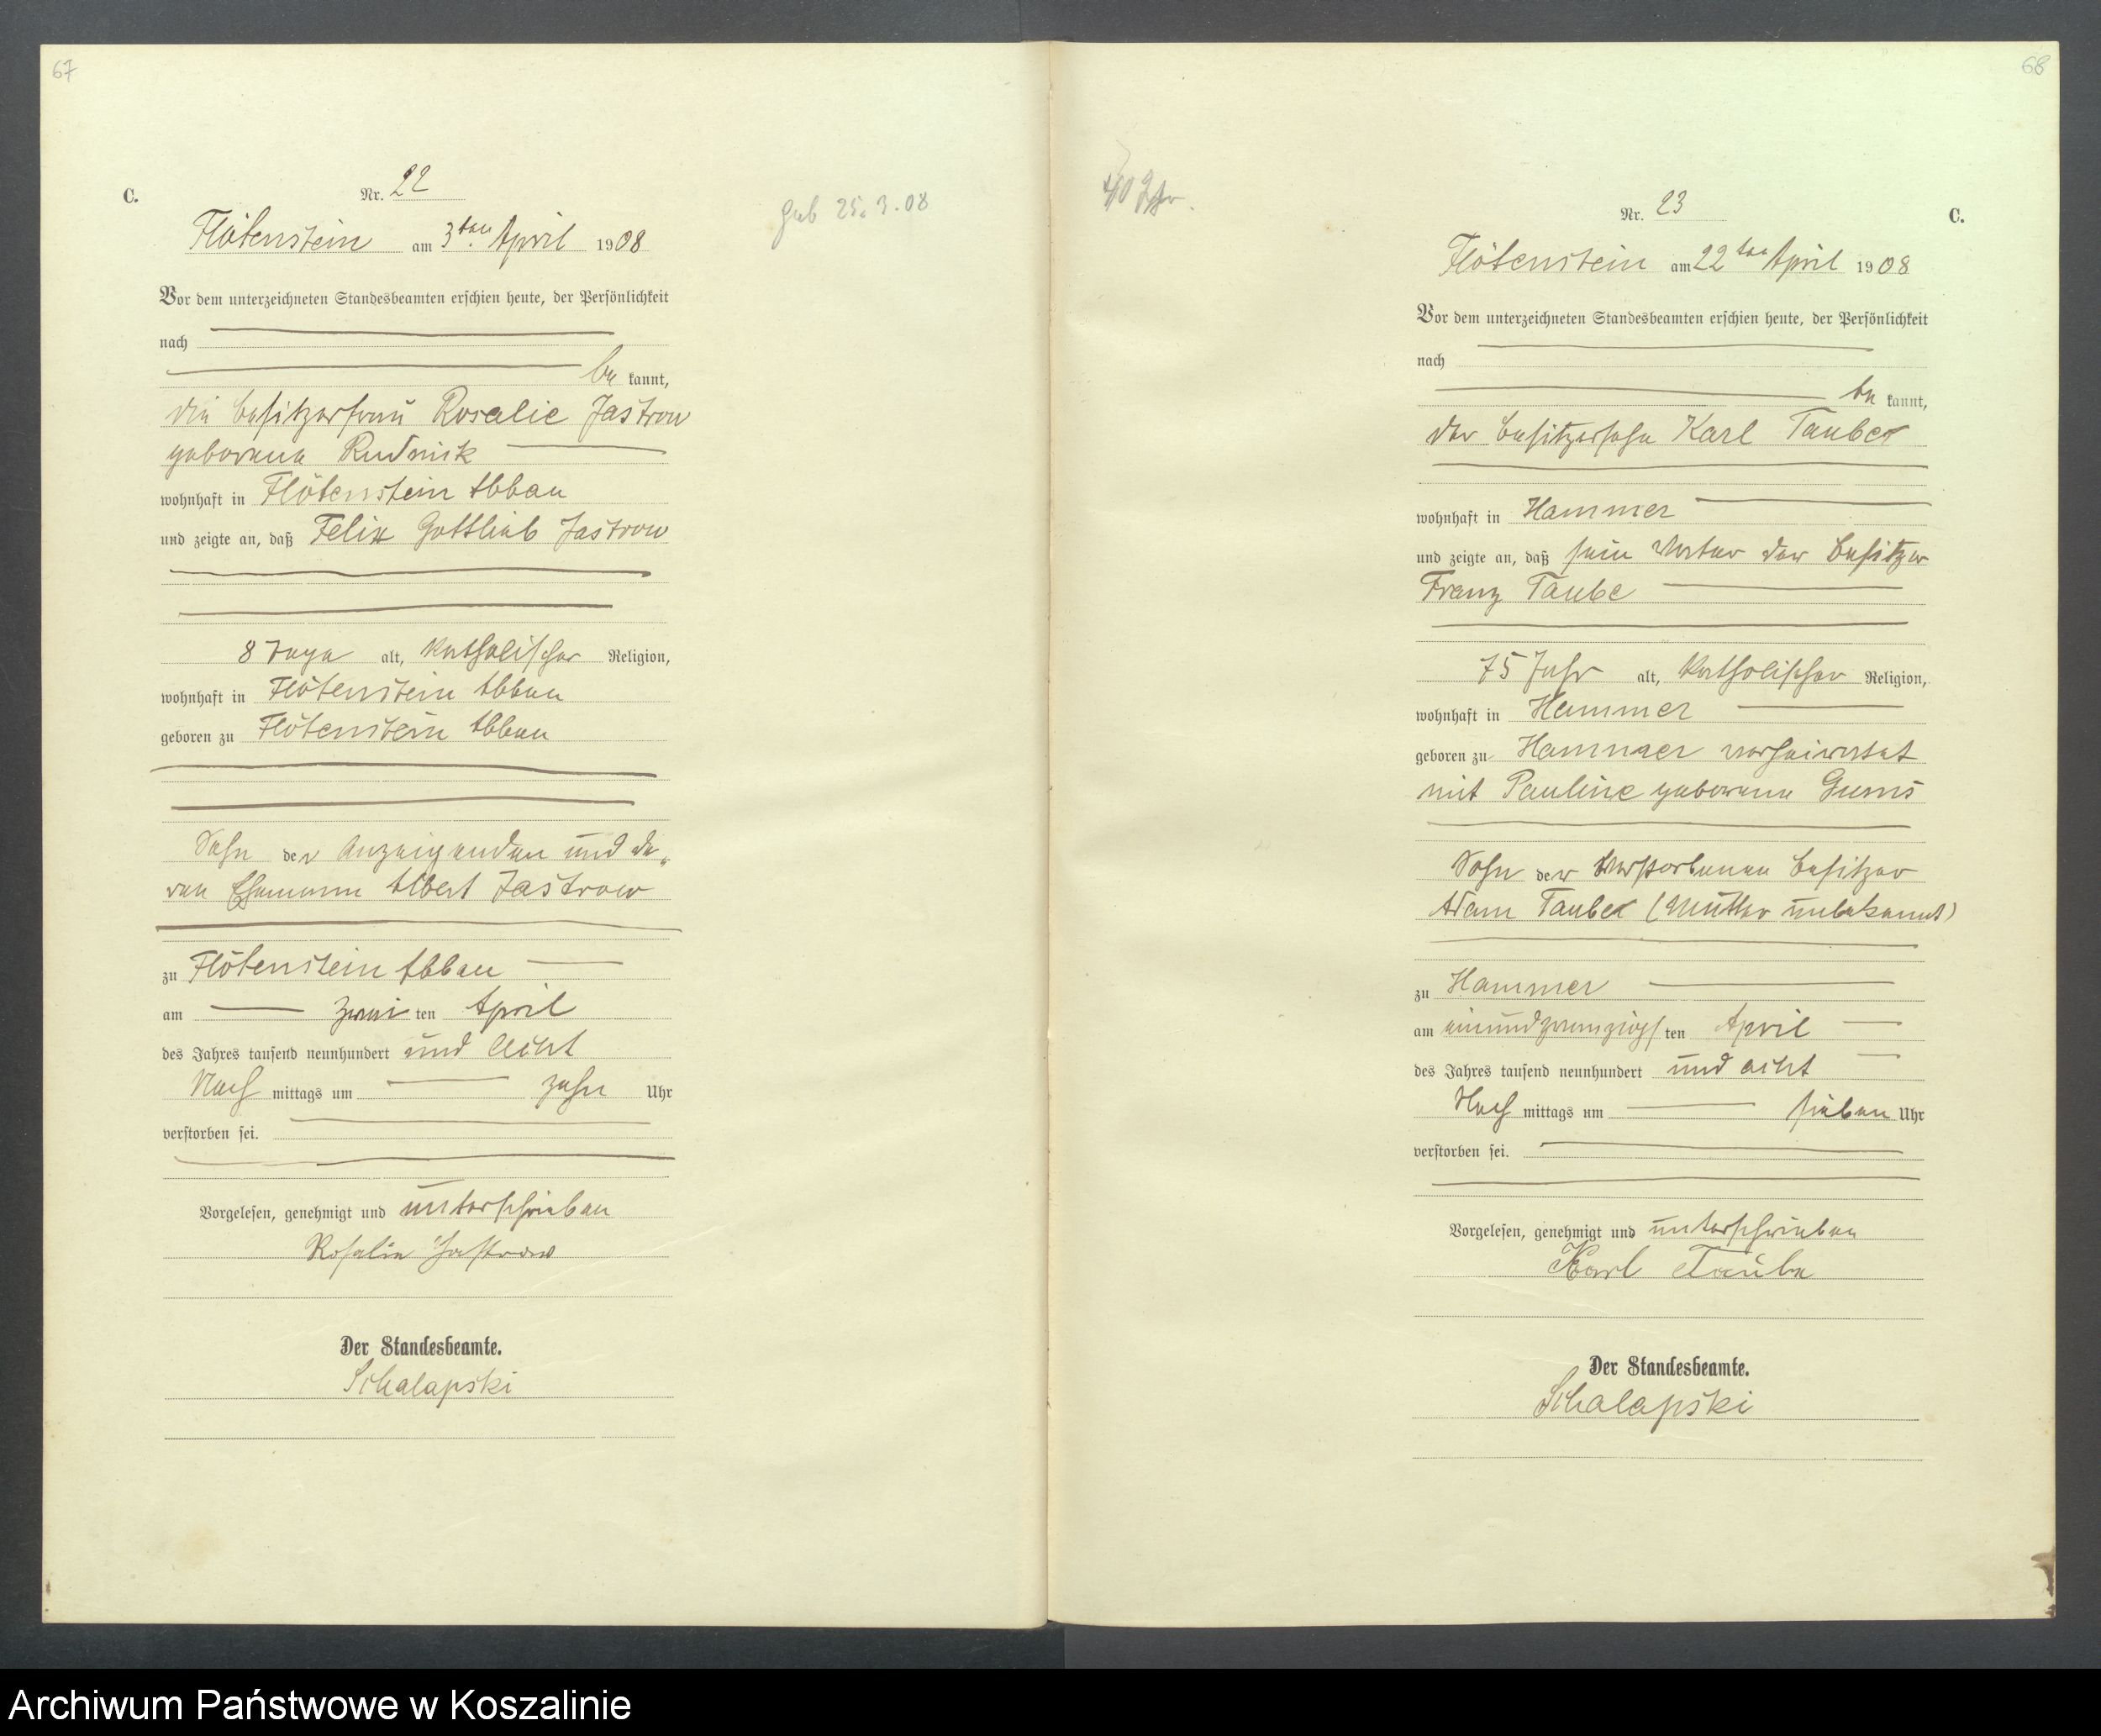 67
C.
Nr. 22
Flötenstein am 3ten April 1908
geb 25.3.08
Vor dem unterzeichneten Standesbeamten erschien heute, der Persönlichkeit
nach
be kannt,
die Besitzerfrau Rosalie Jastrow
geborene Rudnick
wohnhaft in Flötenstein Abbau
und zeigte an, daß Felix Gottlieb Jastrow
8 Tage alt, katholischer Religion,
wohnhaft in Flötenstein Abbau
geboren zu Flötenstein Abbau
Sohn der Anzeigenden und de„
ren Ehemann Albert Jastrow
zu Flötenstein Abbau
am zwei ten April
des Jahres tausend neunhundert und Acht
Nach mittags um zehn Uhr
verstorben sei.
Vorgelesen, genehmigt und unterschrieben
Rosalie Jastrow
Der Standesbeamte.
Schalapski
68
40
Nr. 23
C.
Flötenstein am 22ten April 1908
Vor dem unterzeichneten Standesbeamten erschien heute, der Persönlichkeit
nach
be kannt,
der Besitzersohn Karl Taube
wohnhaft in Hammer
und zeigte an, daß sein Vater der Besitzer
Franz Taube
75 Jahr alt, katholischer Religion,
wohnhaft in Hammer
geboren zu Hammer verheiratet
mit Pauline geborene Gums
Sohn der verstorbenen Besitzer
Adam Taube (Mutter unbekannt)
zu Hammer
am einundzwanzigs ten April
des Jahres tausend neunhundert und acht
Nach mittags um sieben Uhr
verstorben sei.
Vorgelesen, genehmigt und unterschrieben
Karl Taube
Der Standesbeamte.
Schalapski
Archiwum Państwowe w Koszalinie